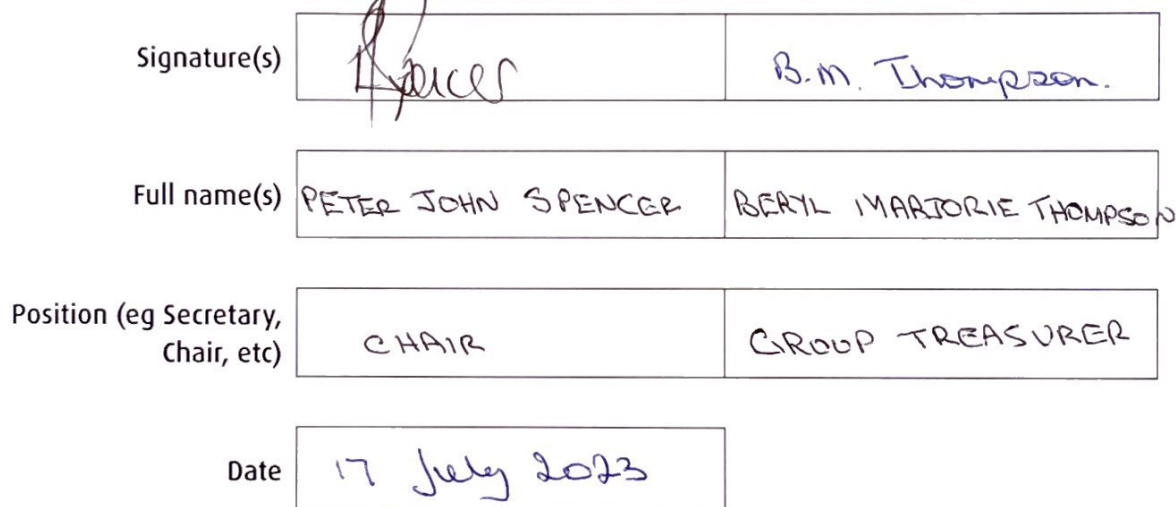 Signature(s) Spencer B.M. Thompson.
Full name(s) PETER JOHN SPENCER BERYL MARJORIE THOMPSON
Position (eg Secretary,
Chair, etc) CHAIR GROUP TREASURER
Date 17 July 2023